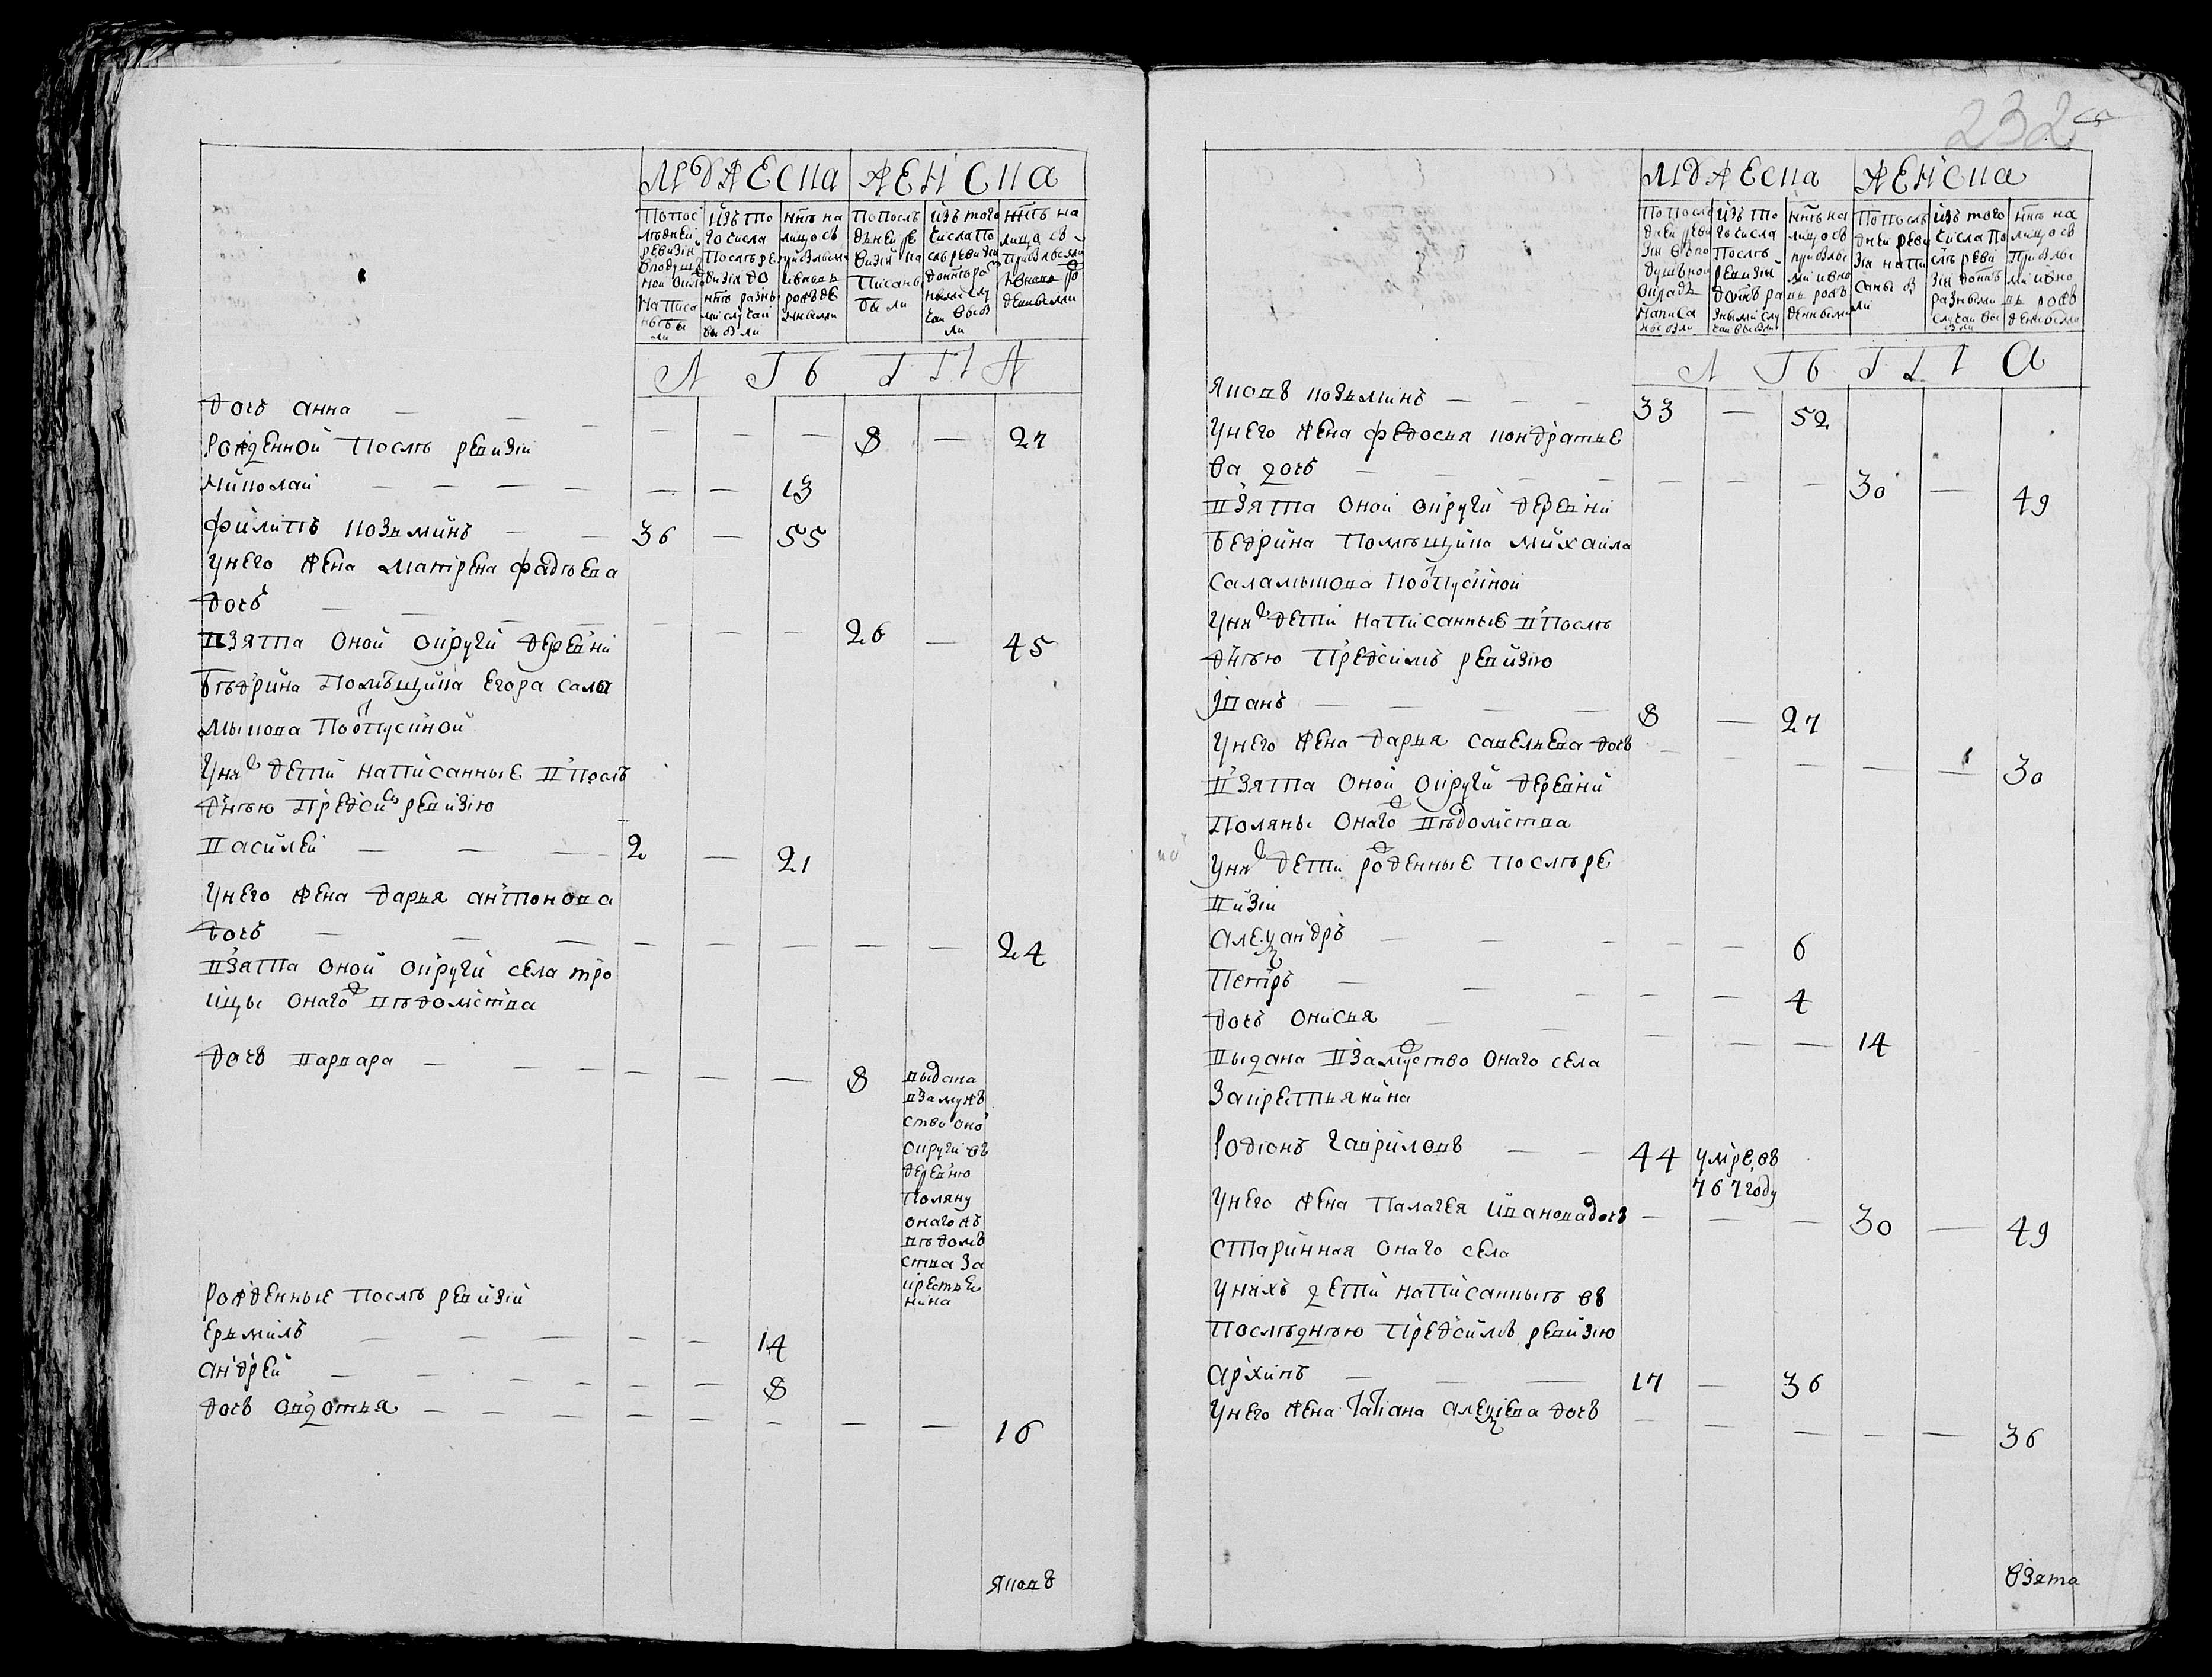 мужеска женска
Попос
лѣдней
ревизіи
вподуш
ном окла
написа
ны бы
ли
изъ то
го числа
послѣ ре
визіи до
нн̃ѣ разны
ми случаи
выбыли
нн̃ѣ на
лицо съ
прибылыми
ивновь
рожде
нными
Попослѣ
дней ре
визіи на
писаны
были
изъ того
числа по
слѣ ревизіи
донн̃ѣ ра
ными слу
чаи выбы
ли
нн̃ѣ на
лицо съ
прибылыми
ивновь ро
денными
Л Г б Л Г І А
дочь анна — — — — — — 8 — 27
рожденной послѣ ревизіи
николай — — — — — — 13
филипъ козминъ — — 36 — 55
унего жена матрена фадѣева
дочь — — — — — — 26 — 45
взята оной округи деревни
бѣдрина помѣщика егора сала
мыкова поотпускной
уних дети написанные впослѣ
днѣю предсим ревизію
василей — — — 2 — 21
унего жена дарья антонова
дочь — — — — — — — — 24
взята оной округи села тро
ицы онагож вѣдомства
дочь варвара — — — — — — 8
выдана
взамужѣ
ство оной
округи въ
деревню
поляну
онагожъ
вѣдомъ
ства за
крестья
нина
рожденные послѣ ревизіи
ермилъ — — — — — 14
андрей — — — — — — 8
дочь авдотья — — — — — — — — — 16
яковъ
232
мужеска женска
По после
дней реви
зіи въпо
душной
окладъ
написа
ны были
изъ то
го числа
послѣ
ревизіи
донн̃ѣ ра
зными слу
чаи выбыли
нн̃ѣ на
лицо съ
прибылы
ми ивно
вь рож
денными
По послѣ
дней реви
зіи напи
саны бы
ли
изъ того
числа по
слѣ реви
зіи донн̃ѣ
разными
случаи вы
были
нн̃ѣ на
лицо съ
прибылы
ми ивно
вь рож
денными
Л Г б Г І а
яковъ козминъ — — — 33 — 52
унего жена федосья кондратье
ва дочь — — — — — — 30 — 49
взята оной округи деревни
бедрина помѣщика михаила
саламыкова поотпускной
уних дети написанные впослѣ
днѣю предсимъ ревизію
иванъ — — — — 8 — 27
унего жена дарья савельева дочь — — — — — 30
взята оной округи деревни
поляны онагож вѣдомства
уних дети роденные послѣ ре
визіи
александръ — — — — — 6
петръ — — — — — 4
дочь онисья — — — — — 14
выдана взамуство онаго села
закрестьянина
родіонъ гавриловъ — — 44 умре въ
767 году
унего жена палагея иванова дочь — — — 30 — 49
старинная онаго села
унихъ дети написанныѣ въ
послѣднѣю предсимъ ревизію
архипъ — — — 17 — 36
унего жена татіана алексіева дочь — — — — — 36
взята